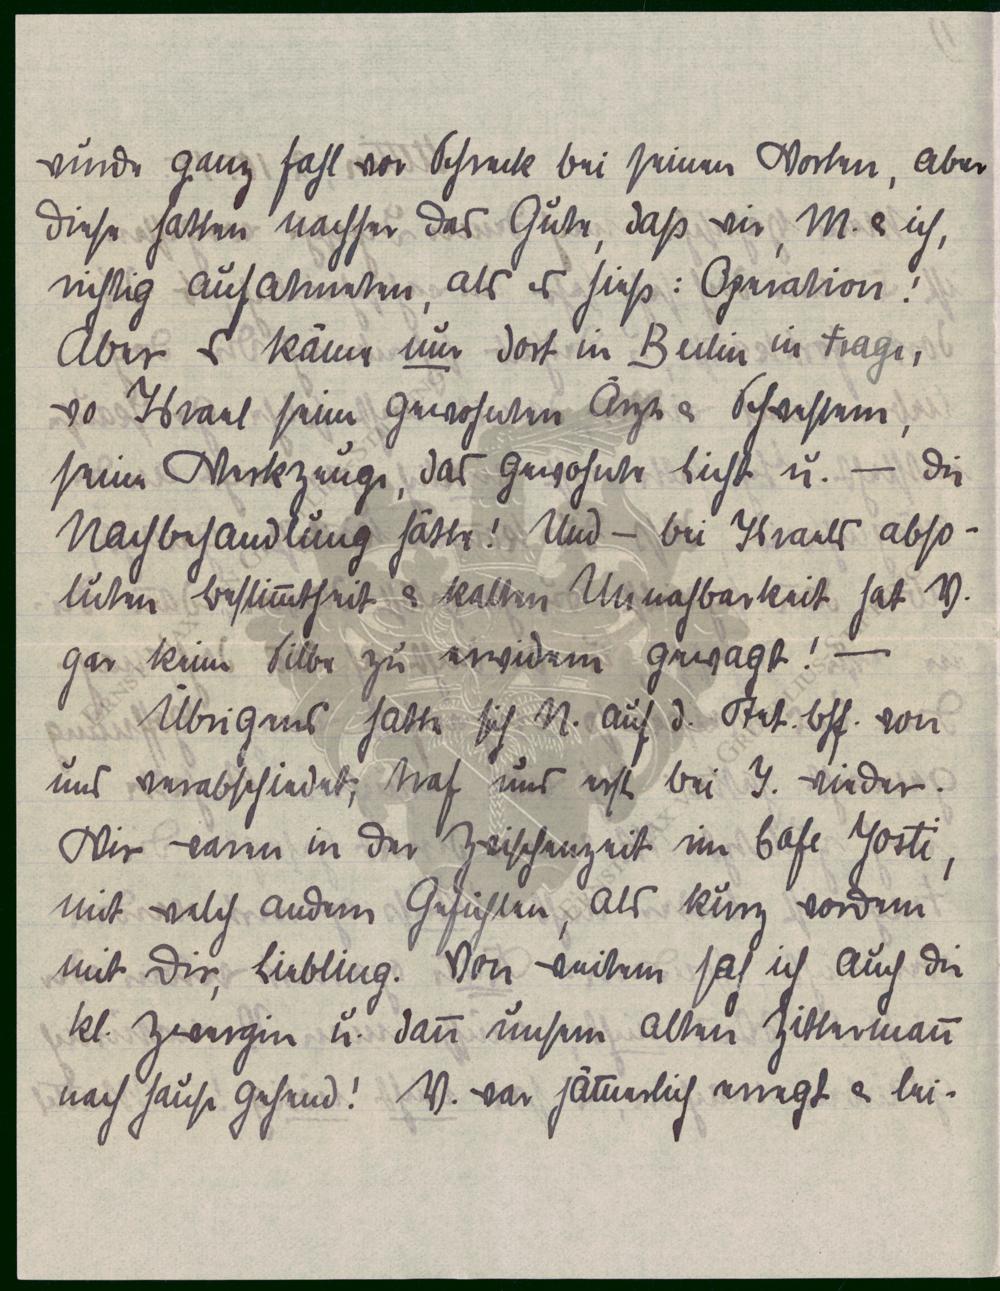 wurde ganz fahl vor Schreck bei seinen Worten, aber
diese hatten nachher das Gute, daß wir, M. & ich,
richtig aufatmeten, als es hieß: Operation!
Aber es käme nur dort in Berlin in Frage,
wo Israel seine gewohnten Ärzte & Schwestern,
seine Werkzeuge, das gewohnte Licht u. — die
Nachbehandlung hätte! Und — bei Israels abso-
luten Bestim̅theit & kalten Unnahbarkeit hat V.
gar keine Silbe zu erwidern gewagt! —
Übrigens hatte sich N. auf d. Stet. bhf. von
uns verabschiedet; traf uns erst bei I. wieder.
Wir waren in der Zwischenzeit im Café Josti,
mit welch andern Gesichten, als kurz vordem
mit Dir, Liebling. Von weitem sah ich auch die
kl. Zwergin u. dan̅ unsern alten Zitterman̅
nach Hause gehend! V. war jäm̅erlich erregt & lei-